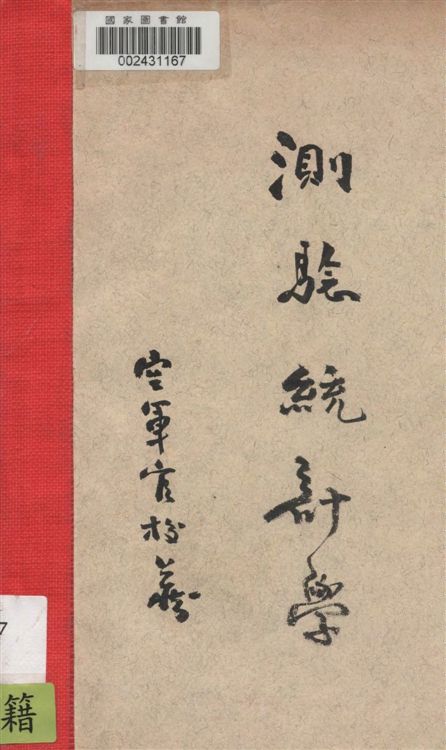 國家圖書館
002431167
測驗統計學
空軍官校
7
籍